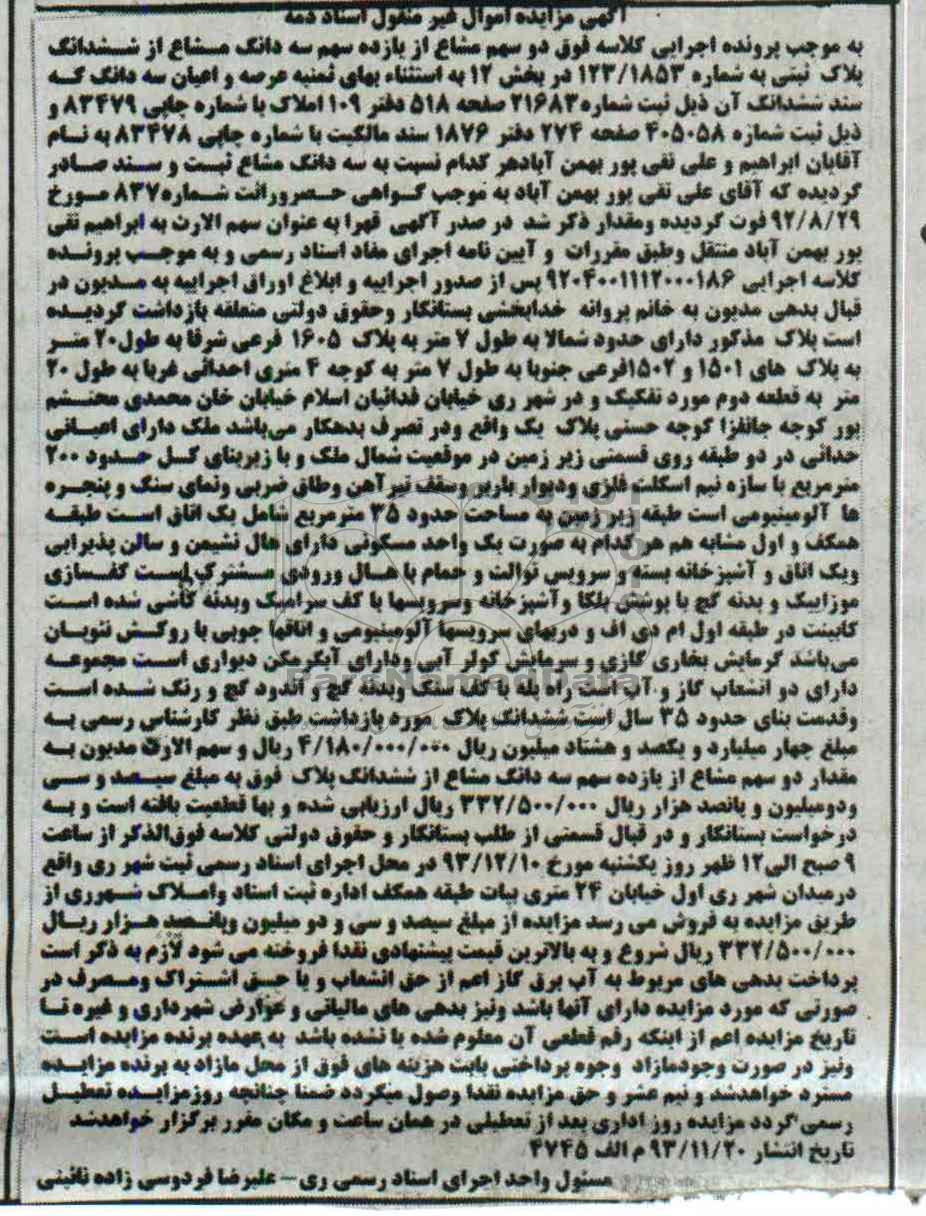 آگهی مزایده اموال غیر منقول اسناد ذمه
به موجب پرونده اجرایی کلاسه فوق دو سهم مشاع از یازده سهم سه دانگ مشاع از ششدانگ
پلاک ثبتی به شماره ۱۲۳/۱۸۵۳ در بخش ۱۲ به استثناء بهای ثمنیه عرصه و اعیان سه دانگ که
سند ششدانگ آن ذیل ثبت شماره ۲۱۶۸۳ صفحه ۵۱۸ دفتر ۱۰۹ املاک با شماره چاپی ۸۳۴۷۹ و
ذیل ثبت شماره ۴۰۵۰۵۸ صفحه ۲۷۴ دفتر ۱۸۷۶ سند مالکیت با شماره چاپی ۸۳۴۷۸ به نام
آقایان ابراهیم و علی تقی پور بهمن آبادهر کدام نسبت به سه دانگ مشاع ثبت و سند صادر
گردیده که آقای علی تقی پور بهمن آباد به موجب گواهی حصروراثت شماره۸۳۷ مورخ
۹۲/۸/۲۹ فوت گردیده ومقدار ذکر شد در صدر آگهی قهرا به عنوان سهم الارث به ابراهیم تقی
پور بهمن آباد منتقل وطبق مقررات و آیین نامه اجرای مفاد اسناد رسمی و به موجب پرونده
کلاسه اجرایی ۹۲۰۴۰۰۱۱۱۲۰۰۰۱۸۶ پس از صدور اجراییه و ابلاغ اوراق اجراییه به مدیون در
قبال بدهی مدیون به خانم پروانه خدابخشی بستانکار وحقوق دولتی متعلقه بازداشت گردیده
است پلاک مذکور دارای حدود شمالا به طول ۷ متر به پلاک ۱۶۰۵ فرعی شرقا به طول۲۰ متر
به پلاک های ۱۵۰۱ و ۱۵۰۲فرعی جنوبا به طول ۷ متر به کوچه ۴ متری احداثی غربا به طول ۲۰
متر به قطعه دوم مورد تفکیک و در شهر ری خیابان فدائیان اسلام خیابان خان محمدی محتشم
پور کوچه جانفزا کوچه حسنی پلاک یک واقع ودر تصرف بدهکار می‌باشد ملک دارای اعیانی
حداثی در دو طبقه روی قسمتی زیر زمین در موقعیت شمال ملک و با زیربنای کل حدود ۲۰۰
مترمربع با سازه نیم اسکلت فلزی ودیوار باربر وسقف تیرآهن وطاق ضربی ونمای سنگ و پنجره
ها آلومینیومی است طبقه زیر زمین به مساحت حدود ۳۵ مترمربع شامل یک اتاق است طبقه
همکف و اول مشابه هم هر کدام به صورت یک واحد مسکونی دارای هال نشیمن و سالن پذیرایی
ویک اتاق و آشپزخانه بسته و سرویس توالت و حمام با هال ورودی مشترک است کفسازی
موزاییک و بدنه گچ با پوشش بلکا وآشپزخانه وسرویسها با کف سرامیک وبدنه کاشی شده است
کابینت در طبقه اول ام دی اف و دربهای سرویسها آلومینیومی و اتاقها چوبی با روکش نئوپان
می‌باشد گرمایش بخاری گازی و سرمایش کولر آبی ودارای آبگرمکن دیواری است مجموعه
دارای دو انشعاب گاز و آب است راه پله با کف سنگ وبدنه گچ و اندود گچ و رنگ شده است
وقدمت بنای حدود ۳۵ سال است ششدانگ پلاک مورد بازداشت طبق نظر کارشناس رسمی به
مبلغ چهار میلیارد و یکصد و هشتاد میلیون ریال ۴/۱۸۰/۰۰۰/۰۰۰ ریال و سهم الارث مدیون به
مقدار دو سهم مشاع از یازده سهم سه دانگ مشاع از ششدانگ پلاک فوق به مبلغ سیصد و سی
ودومیلیون و پانصد هزار ریال ۳۳۲/۵۰۰/۰۰۰ ریال ارزیابی شده و بها قطعیت یافته است و به
درخواست بستانکار و در قبال قسمتی از طلب بستانکار و حقوق دولتی کلاسه فوق‌الذکر از ساعت
۹ صبح الی۱۲ ظهر روز یکشنبه مورخ ۹۳/۱۲/۱۰ در محل اجرای اسناد رسمی ثبت شهر ری واقع
درمیدان شهر ری اول خیابان ۲۴ متری بیات طبقه همکف اداره ثبت اسناد واملاک شهرری از
طریق مزایده به فروش می رسد مزایده از مبلغ سیصد و سی و دو میلیون وپانصد هزار ریال
۳۳۲/۵۰۰/۰۰۰ ریال شروع و به بالاترین قیمت پیشنهادی نقدا فروخته می شود لازم به ذکر است
پرداخت بدهی های مربوط به آب برق گاز اعم از حق انشعاب و یا حق اشتراک ومصرف در
صورتی که مورد مزایده دارای آنها باشد ونیز بدهی های مالیاتی و عوارض شهرداری و غیره تا
تاریخ مزایده اعم از اینکه رقم قطعی آن معلوم شده یا نشده باشد به عهده برنده مزایده است
ونیز در صورت وجودمازاد وجوه پرداختی بابت هزینه های فوق از محل مازاد به برنده مزایده
مسترد خواهدشد و نیم عشر و حق مزایده نقدا وصول میگردد ضمنا چنانچه روزمزایده تعطیل
رسمی گردد مزایده روز اداری بعد از تعطیلی در همان ساعت و مکان مقرر برگزار خواهدشد
تاریخ انتشار ۹۳/۱۱/۲۰ م الف ۴۷۴۵
مسئول واحد اجرای اسناد رسمی ری – علیرضا فردوسی زاده نائینی
ParsNamadData